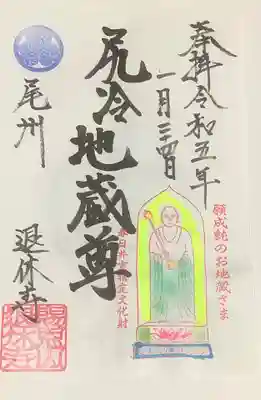 奉拝 令和五年
一月三四日
願成就のお地蔵さま
春日井市指定文化財
尻冷地蔵尊
尾州
退休寺